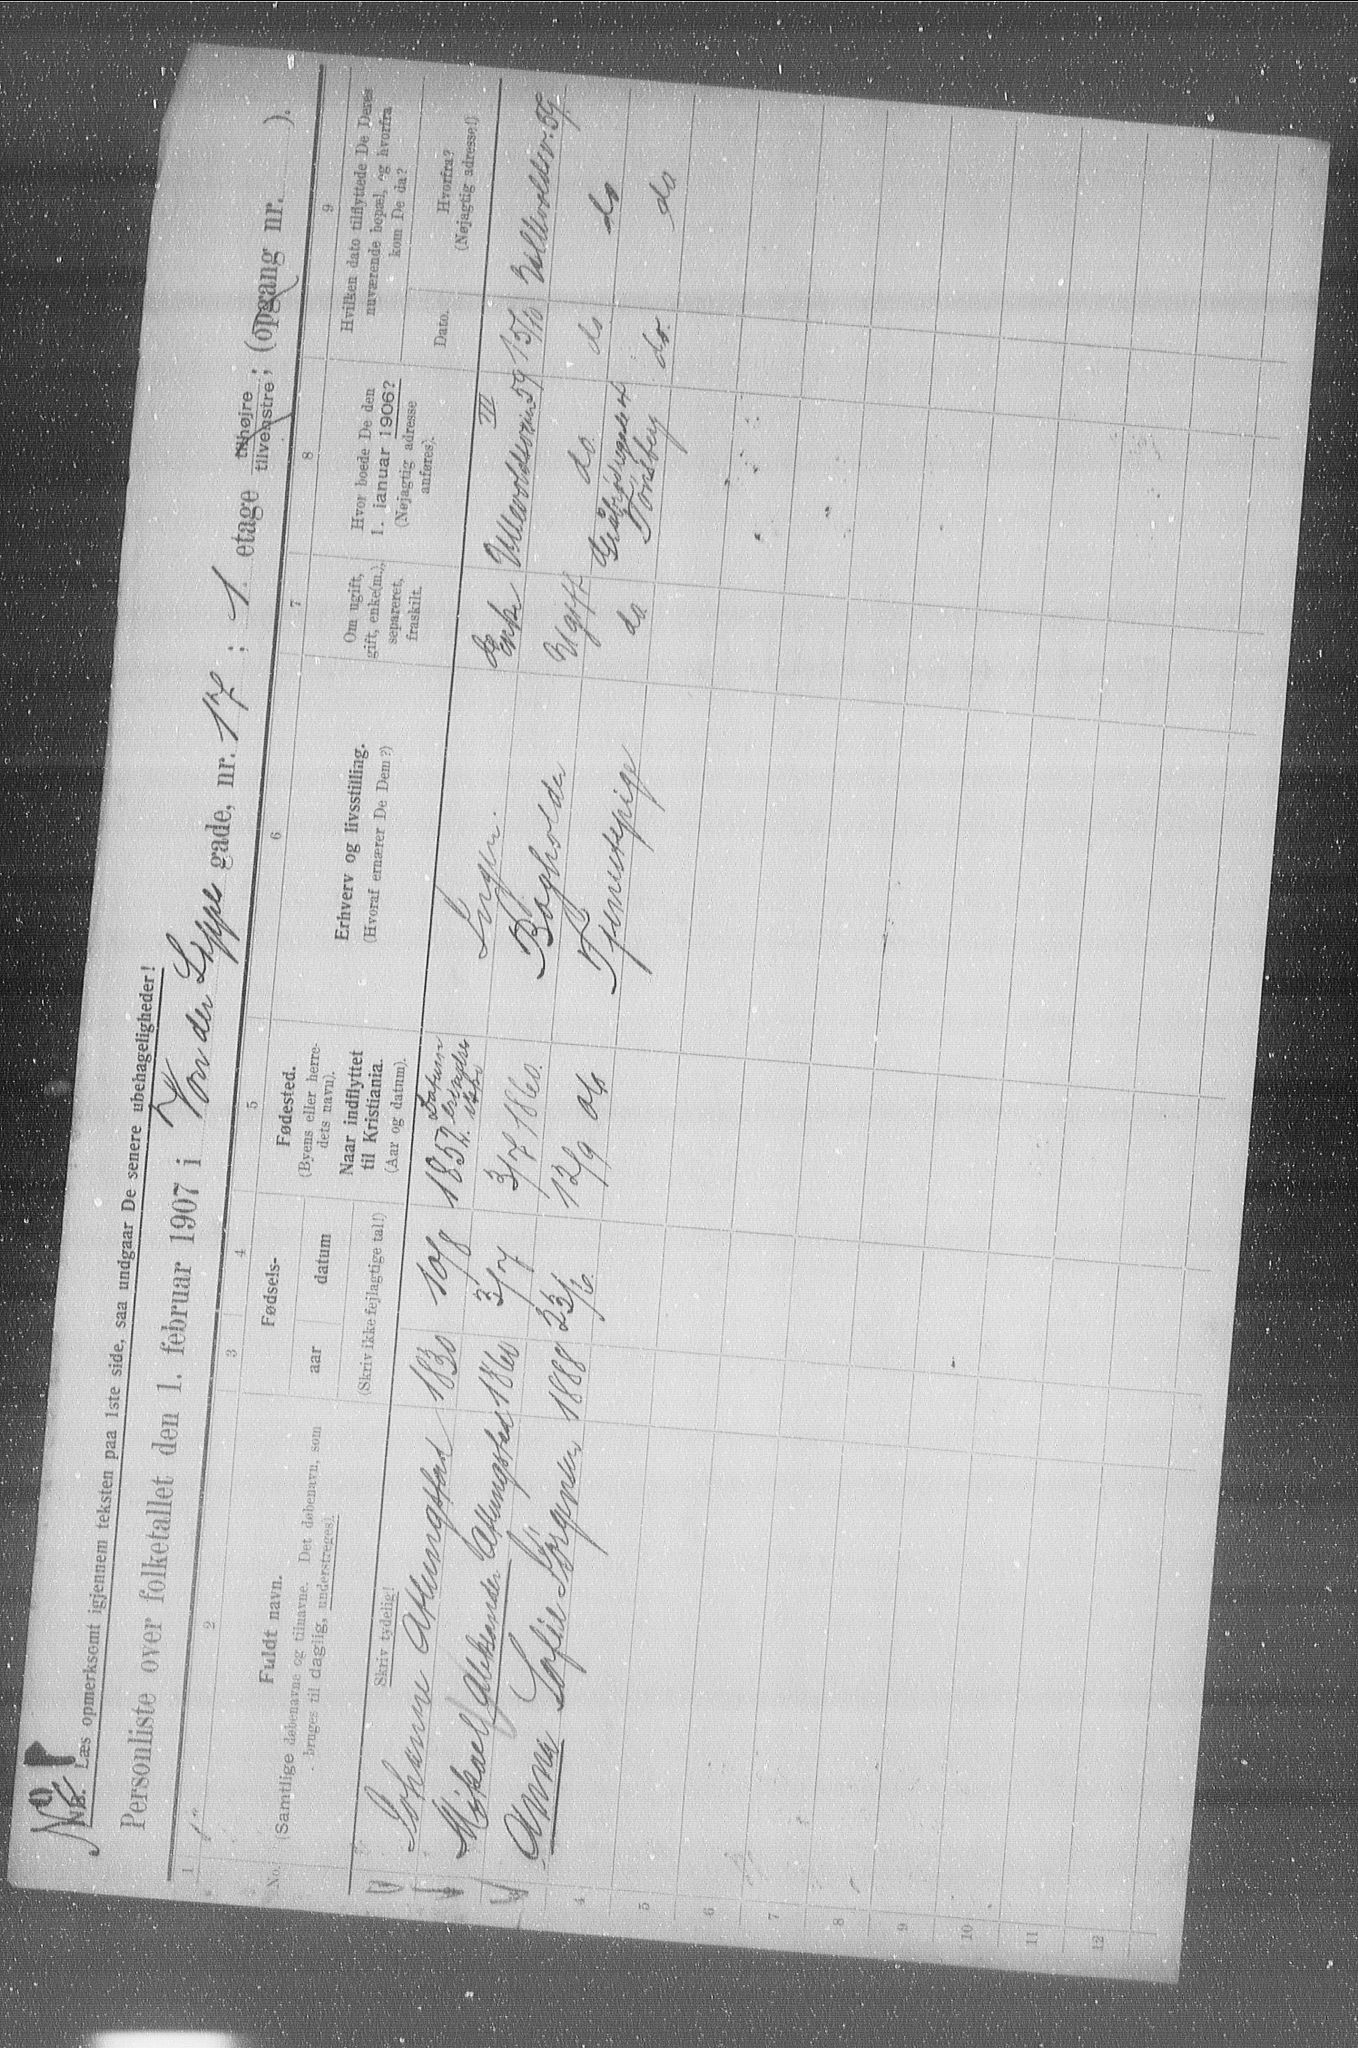 No 1
NB. Læs opmerksomt igjennem teksten paa 1ste side, saa undgaar De senere ubehageligheder!
Personliste over folketallet den 1. februar 1907 i Von der Lippes gade, nr. 17; 1. etage tilhøjre tilvenstre; (opgang nr. ).
1 2 3 4 5 6 7 8 9
No. Fuldt navn. (Samtlige døbenavne og tilnavne. Det døbenavn, som bruges til daglig, understreges).
Fødsels- aar datum
Fødested. (Byens eller herredets navn). Naar indflyttet til Kristiania. (Aar og datum).
Erhverv og livsstilling. (Hvoraf ernærer De Dem?)
Om ugift, gift, enke(m.), separeret, fraskilt.
Hvor boede De den 1. januar 1906? (Nøjagtig adresse anføres).
Hvilken dato tilflyttede De Deres nuværende bopæl, og hvorfra kom De da?
Dato. Hvorfra? (Nøjagtig adresse!)
Skriv tydelig! (Skriv ikke fejlagtige tal!)
Johanne Aflungstad 1830 10/8 1857. Datum erindres ikke Ingen. Enke Ullevoldsvein 59 III 15/10 Ullevoldsv. 59
Mikael Aleksander Aflungstad 1860 3/7 3/7 1860. Bogholder Ugift do. do do
Anna Sofie Jörgensen 1888 23/6. 12/9 06 Tjenestepige do. Tönsberg do. do
4
5
6
7
8
9
10
11
12